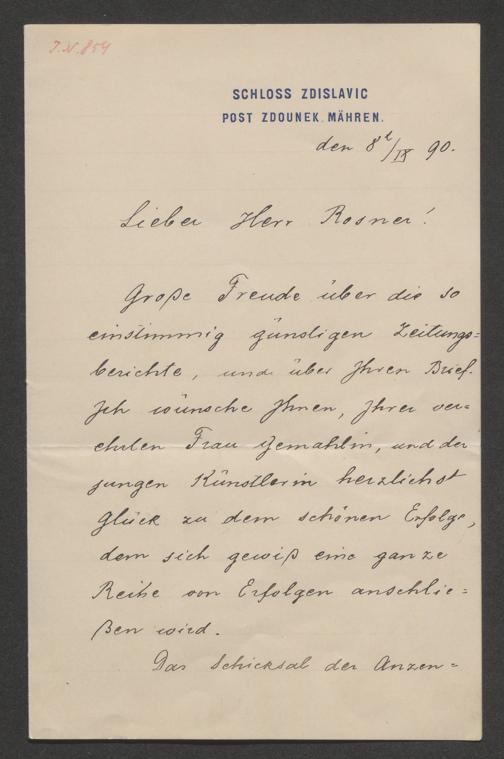 J.N. 854
SCHLOSS ZDISLAVIC
POST ZDOUNEK. MÄHREN.
den 8t/IX 90.
Lieber Herr Rosner!
Große Freude über die so
einstimmig günstigen Zeitungs=
berichte, und über Ihren Brief.
Ich wünsche Ihnen, Ihrer ver=
ehrten Frau Gemahlin, und der
jungen Künstlerin herzlichst
Glück zu dem schönen Erfolge,
dem sich gewiß eine ganze
Reihe von Erfolgen anschlie=
ßen wird.
Das Schicksal der Anzen=